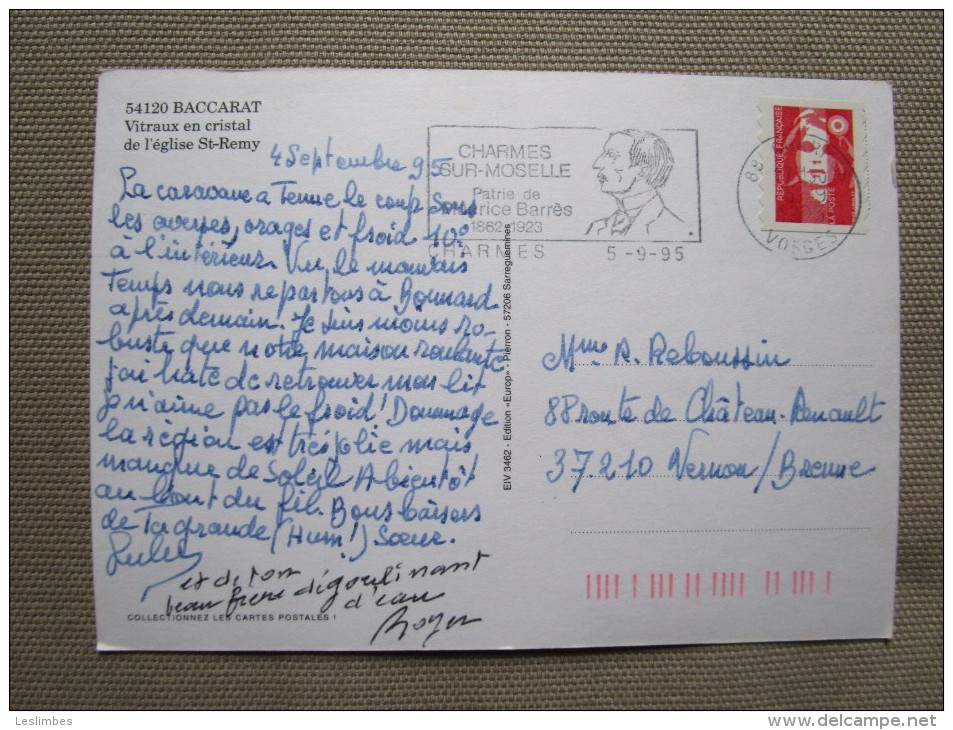 54120 BACCARAT
Vitraux en cristal
de l'église St-Remy
4 Septembre 95
La caravane a Tenue le coup Sous
les averses, orages et froid 10°
à l'intérieur. Vu le mauvais
Temps nous repartons à Bonnard
après demain. Je suis moins ro-
buste que notre maison roulante
j'ai hâte de retrouver mon lit
je n'aime pas le froid! Dommage
la région est très jolie mais
manque de Soleil. A bientôt
au bout du fil. Bons baisers
de Ta grande (Hum!) Soeur.
Lulu
et de ton
beau frère dégoulinant
d'eau
Roger
COLLECTIONNEZ LES CARTES POSTALES !
EIV 3462 - Edition «Europ» - Pierron - 57206 Sarreguemines
CHARMES
SUR-MOSELLE
Patrie de
Maurice Barrès
1862-1923
CHARMES 5-9-95
88
VOSGES
REPUBLIQUE FRANÇAISE
LA POSTE
Mme A. Reboussin
88 route de Château-Renault
37.210 Vernou/Brenne
Leslimbes
delcampe.net